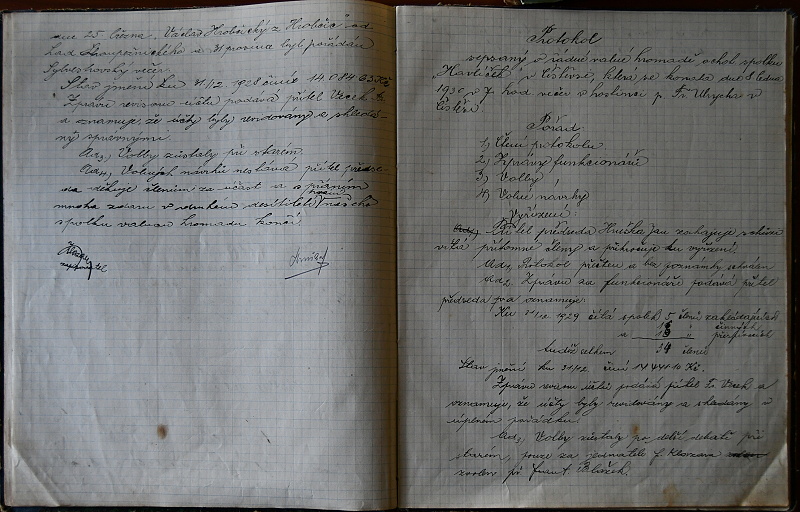 dne 25. března. "Václav Hrobčický z Hrobčic" od
Lad. Stroupežnického a 31 prosince byl pořádán
Sylvestrovský večer.
Stav jmění ku 31/12. 1928 činil 14.084 63 Kč
Zprávu revisorů účtů podává přítel Vacek Fr.
a oznamuje že účty byly revidovány a shledá-
ny správnými.
Ad 3, Volby zůstaly při starém.
Ad 4, Volných návrhů nestává přítel předse-
da děkuje členům za účast a s přáním
mnoho zdaru v druhém desítiletí našeho
spolku valnou hromadu končí.
Protokol
sepsaný o řádné valné hromadě ochot. spolku
"Havlíček" v Čistěvsi, která se konala dne 8. ledna
1930 v 7 hod večer v hostinci p. Fr. Ulrycha v
Čistěvsi.
Pořad:
1, Čtení protokolu.
2, Zprávy funkcionářů
3, Volby
4, Volné návrhy
Vyřízení:
Přítel předseda Hruška Jan zahajuje schůzi
vítá přítomné členy a přikročuje ku vyřízení.
Ad 1, Protokol přečten a bez poznámky schválen
Ad 2, Zprávu za funkcionáře podává přítel
předseda a oznamuje:
Ku 31/12. 1929 čítá spolek 5 členů zakládajících
16 " činných
a 13 " přispívajících
Tudíž celkem 34 členů
Stav jmění ku 31/12. činí 14 441 10 Kč.
Zprávu revisorů účtů podává přítel Fr. Vacek a
oznamuje, že účty byly revidovány a shledány v
úplném pořádku.
Ad 3, Volby zůstaly po delší debatě při
starém, pouze za jednatele
zvolen př. Frant. Blažek.